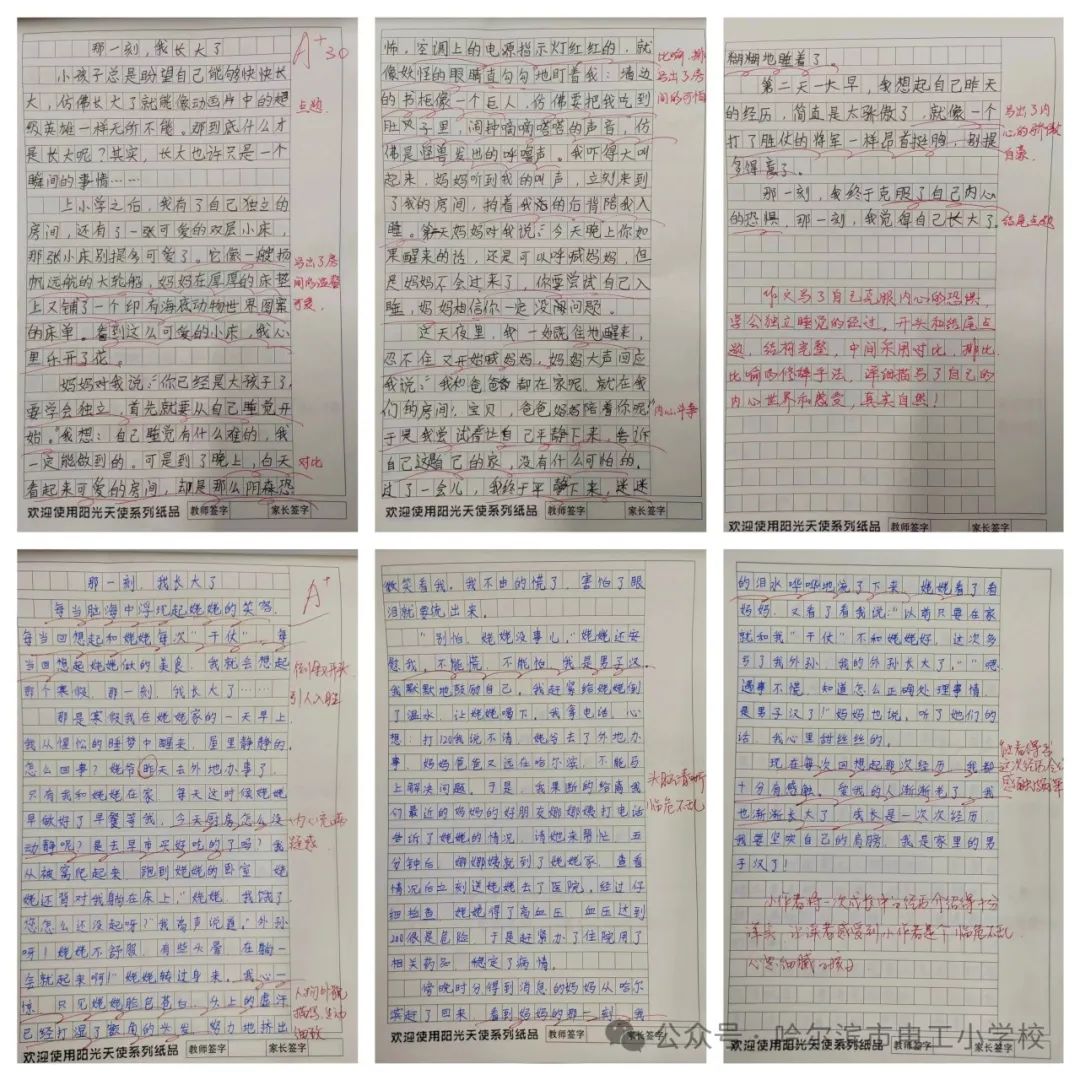 那一刻，我长大了
A+
30
小孩子总是盼望自己能够快快长
大，仿佛长大了就能像动画片中的超
级英雄一样无所不能。那到底什么才
是长大呢？其实，长大也许只是一个
瞬间的事情……
点题
上小学之后，我有了自己独立的
房间，还有了一张可爱的双层小床，
那张小床别提多可爱了。它像一艘扬
帆远航的大轮船，妈妈在厚厚的床垫
上又铺了一个印有海底动物世界图案
的床单。看到这么可爱的小床，我心
里乐开了花。
写出了房
间的温馨
可爱
妈妈对我说：“你已经是大孩子了，
要学会独立，首先就要从自己睡觉开
始。”我想：自己睡觉有什么难的，我
一定能做到的。可是到了晚上，白天
看起来可爱的房间，却是那么阴森恐
对比
欢迎使用阳光天使系列纸品
教师签字
家长签字
怖，空调上的电源指示灯红红的，就
像妖怪的眼睛直勾勾地盯着我；墙边
的书柜像一个巨人，仿佛要把我吃到
肚子里，闹钟嘀嘀嗒嗒的声音，仿
佛是怪兽发出的呼噜声。我吓得大叫
起来，妈妈听到我的叫声，立刻来到
了我的房间，拍着我的后背陪我入
睡。第二天妈妈对我说：“今天晚上你如
果醒来的话，还是可以呼喊妈妈，但
是妈妈不会过来了，你要尝试自己入
睡，妈妈相信你一定没问题。
比喻、排
写出了房
间的可怕
这天夜里，我一如既往地醒来，
忍不住又开始喊妈妈，妈妈大声回应
我说：“我和爸爸都在家呢，就在我
们的房间，宝贝，爸爸妈妈陪着你呢”
于是我尝试着让自己平静下来，告诉
自己这是自己的家，没有什么可怕的。
过了一会儿，我终于平静下来，迷迷
内心斗争
欢迎使用阳光天使系列纸品
教师签字
家长签字
糊糊地睡着了。
第二天一大早，我想起自己昨天
的经历，简直是太骄傲了，就像一个
打了胜仗的将军一样昂首挺胸，别提
多得意了。
写出了内
心的骄傲
自豪
那一刻，我终于克服了自己内心
的恐惧，那一刻，我觉得自己长大了。
结尾点题
作文写了自己克服内心的恐惧，
学会独立睡觉的经过。开头和结尾点
题，结构完整，中间采用对比、排比、
比喻的修辞手法，详细描写了自己的
内心世界和感受，真实自然！
欢迎使用阳光天使系列纸品
教师签字
家长签字
那一刻，我长大了
A+
每当脑海中浮现起姥姥的笑容，
每当回想起和姥姥每次“干仗”，每
当回想起姥姥做的美食，我就会想起
那个寒假，那一刻，我长大了……
开头
引人入胜
那是寒假我在姥姥家的一天早上，
我从惺忪的睡梦中醒来，屋里静静的，
怎么回事？姥爷昨天去外地办事了，
只有我和姥姥在家，每天这时候姥姥
早做好了早餐等我，今天厨房怎么没
动静呢？是去早市买好吃的了吗？我
从被窝爬起来，跑到姥姥的卧室，姥
姥还背对我躺在床上，“姥姥，我饿了，
您怎么还没起呀？”我高声说道。“外孙
呀！姥姥不舒服，有些头晕，在躺一
会就起来啊！”姥姥转过身来，我心一
惊，只见姥姥脸色苍白，头上的虚汗
已经打湿了鬓角的头发，努力地挤出
疑惑
细致
欢迎使用阳光天使系列纸品
教师签字
家长签字
微笑看我。我不由的慌了，害怕了眼
泪就要流出来。
“别怕，姥姥没事儿。”姥姥还安
慰我，不能慌，不能怕，我是男子汉，
我默默地鼓励自己。我赶紧给姥姥倒
了温水，让姥姥喝下，我拿电话，心
想：打120我说不清，姥爷去了外地办
事，妈妈爸爸又远在哈尔滨，不能马
上解决问题。于是，我果断的给离我
们最近的妈妈的好朋友娜娜姨打电话
告诉了姥姥的情况，请她来帮忙，五
分钟后，娜娜姨就到了姥姥家，查看
情况后立刻送姥姥去了医院。经过仔
细检查，姥姥得了高血压，血压达到
200很是危险，于是赶紧办了住院用了
相关药品，稳定了病情。
头脑清晰
临危不乱
傍晚时分得到消息的妈妈从哈尔
滨赶了回来，看到妈妈的那一刻，我
欢迎使用阳光天使系列纸品
教师签字
家长签字
的泪水哗哗地流了下来，姥姥看了看
妈妈，又看了看我说：“以前只要在家
就和我“干仗”不和姥姥好，这次多
亏了我外孙，我的外孙长大了。”“嗯，
遇事不慌，知道怎么正确处理事情，
是男子汉了！”妈妈也说，听了她们的
话，我心里甜丝丝的。
现在每次回想起那次经历，我都
十分有感触，爱我的人渐渐老了，我
也渐渐长大了，成长是一次次经历，
我要坚实自己的肩膀，我是家里的男
子汉了！
小作者将一次成长中的经历介绍得十分
详实，让读者感受到小作者是个临危不乱、
心思细腻的孩子。
公众号·哈尔滨市电工小学校
欢迎使用阳光天使系列纸品
教师签字
家长签字